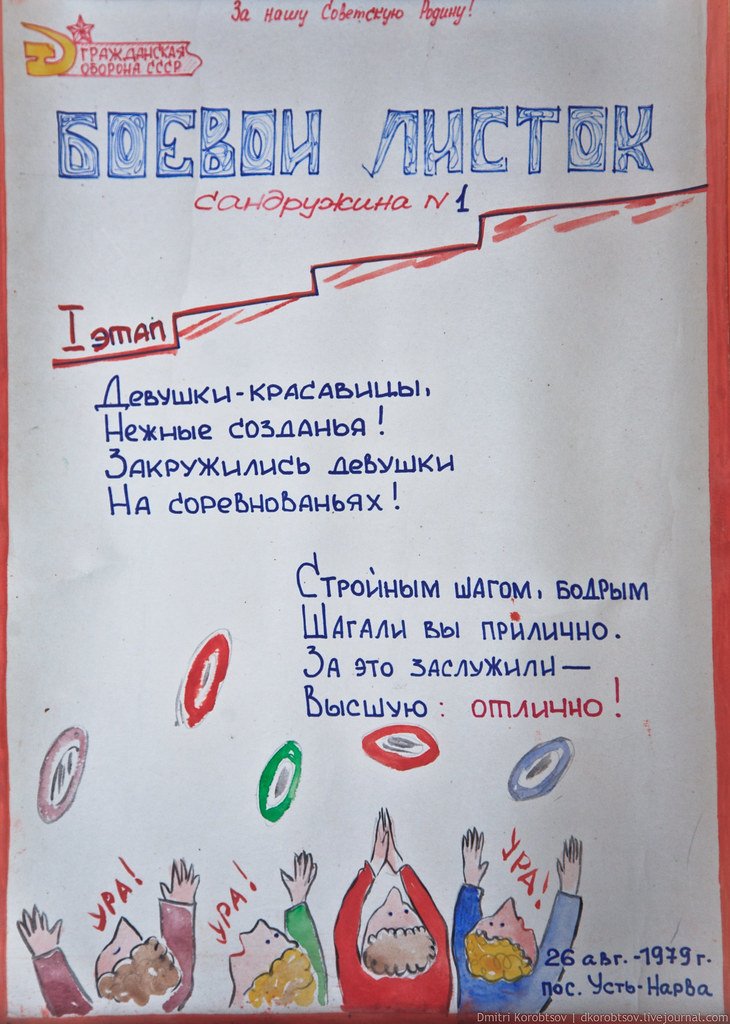 За нашу Советскую Родину!
ГРАЖДАНСКАЯ
ОБОРОНА СССР
БОЕВОЙ ЛИСТОК
сандружина N 1
I ЭТАП
Девушки-красавицы,
Нежные созданья!
Закружились девушки
На соревнованьях!
Стройным шагом, бодрым
Шагали вы прилично.
За это заслужили—
Высшую: отлично!
УРА!
УРА!
УРА!
26 авг.-1979г.
пос. Усть-Нарва
Dmitri Korobtsov | dkorobtsov.livejournal.com